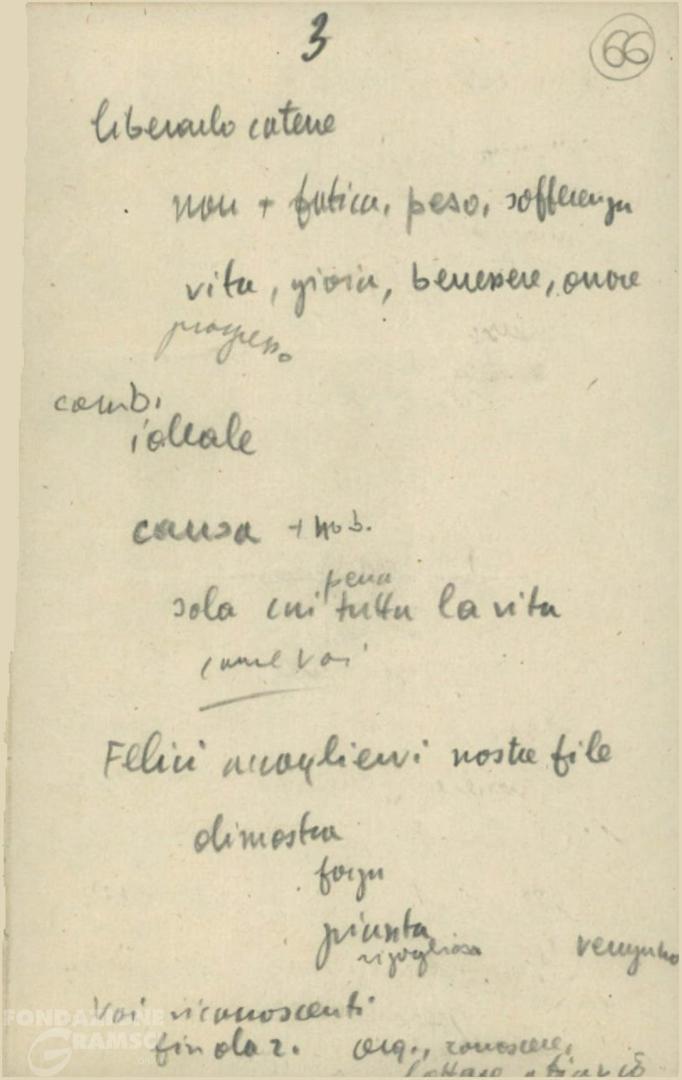 3
66
liberarlo catene
non + fatica, peso, sofferenza
vita, gioia, benessere, onore
progresso
comb.
ideale
causa + nob.
pena
sola cui tutta la vita
come voi
Felici accogliervi nostre file
dimostra
forza
pianta
rigogliosa
vengano
Voi riconoscenti
org., conoscere,
lottare
FONDAZIONE
GRAMSCI